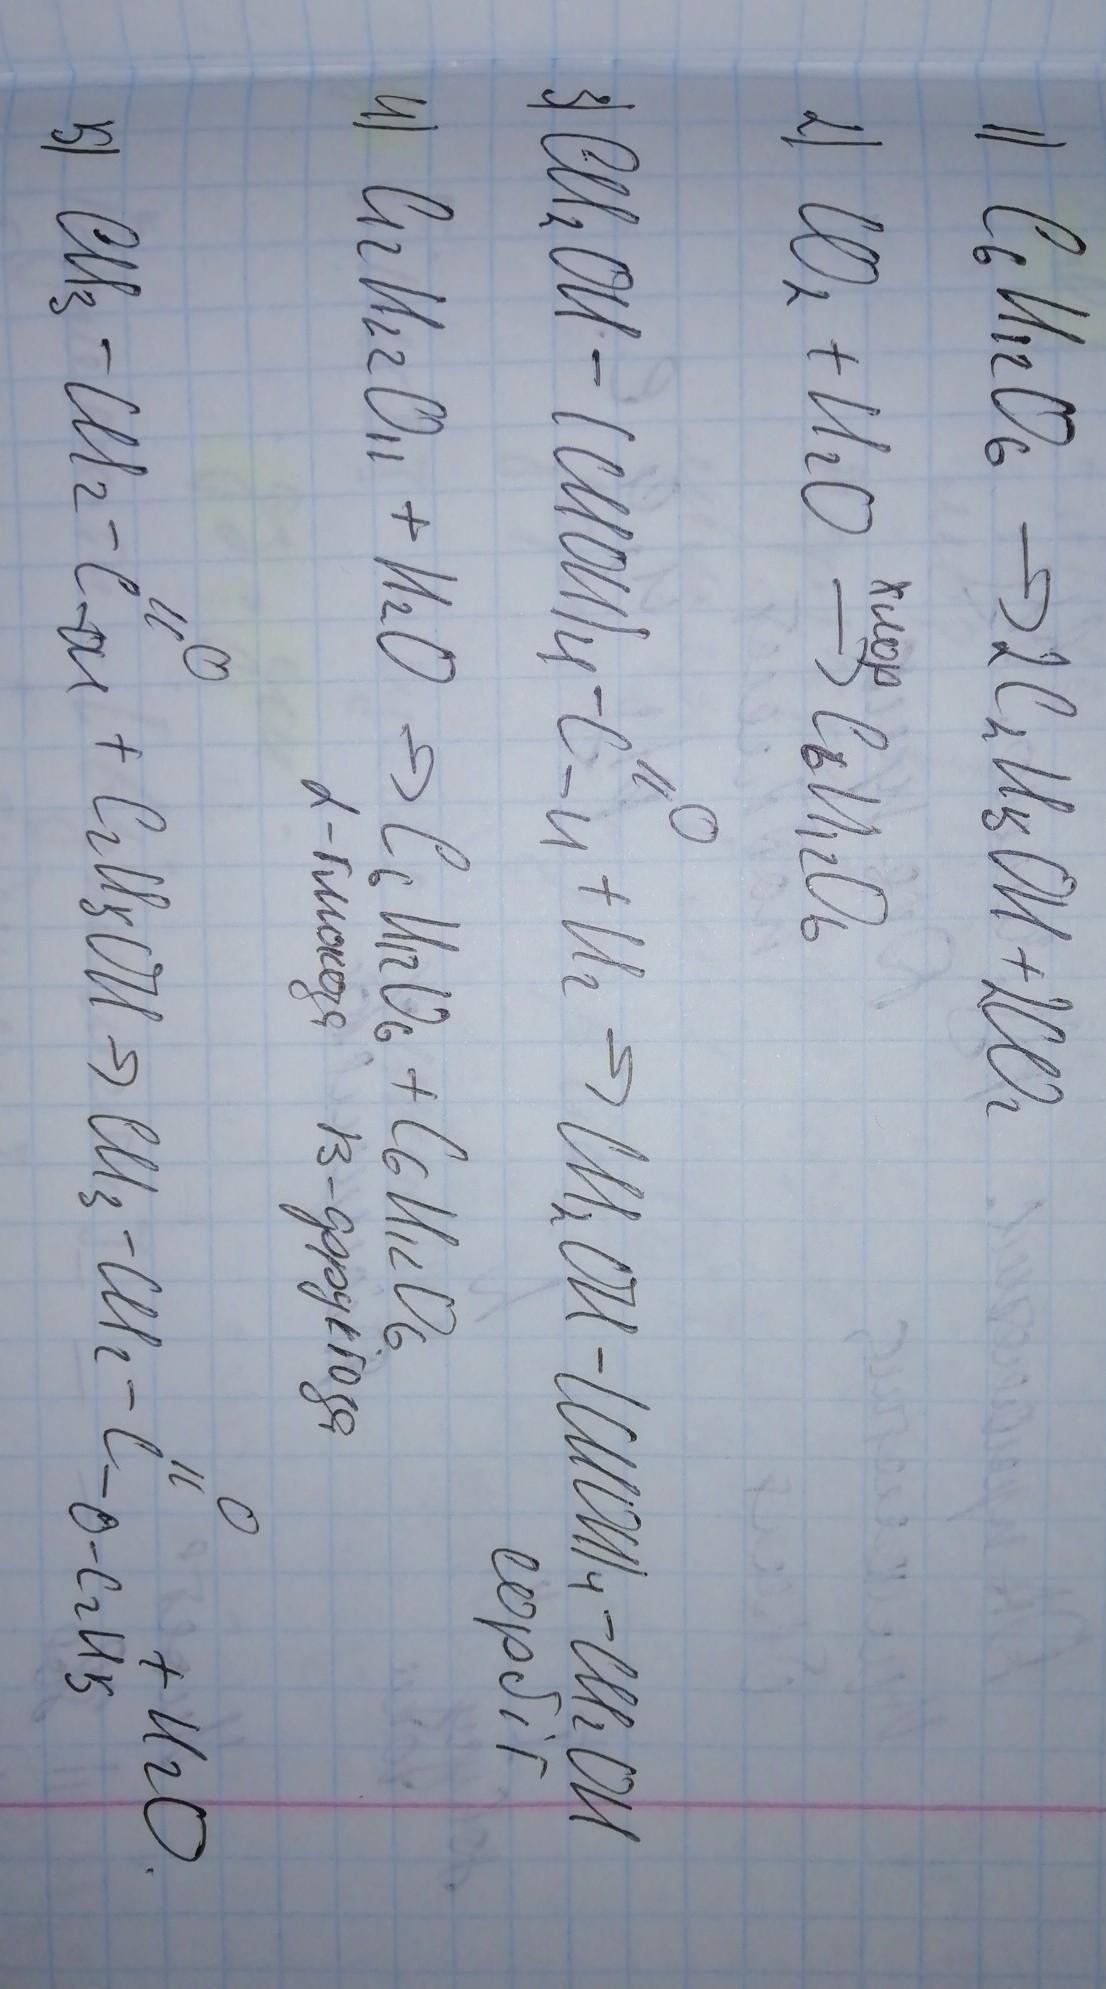 1) C₆H₁₂O₆ → 2C₂H₅OH + 2CO₂
хлор
2) CO₂ + H₂O → C₆H₁₂O₆
O
||
3) CH₂OH – (CHOH)₄ – C – H + H₂ → CH₂OH – (CHOH)₄ – CH₂OH
сорбіт
4) C₁₂H₂₂O₁₁ + H₂O → C₆H₁₂O₆ + C₆H₁₂O₆
α-глюкоза β-фруктоза
O O
|| ||
5) CH₃ – CH₂ – C – OH + C₂H₅OH → CH₃ – CH₂ – C – O – C₂H₅ + H₂O.